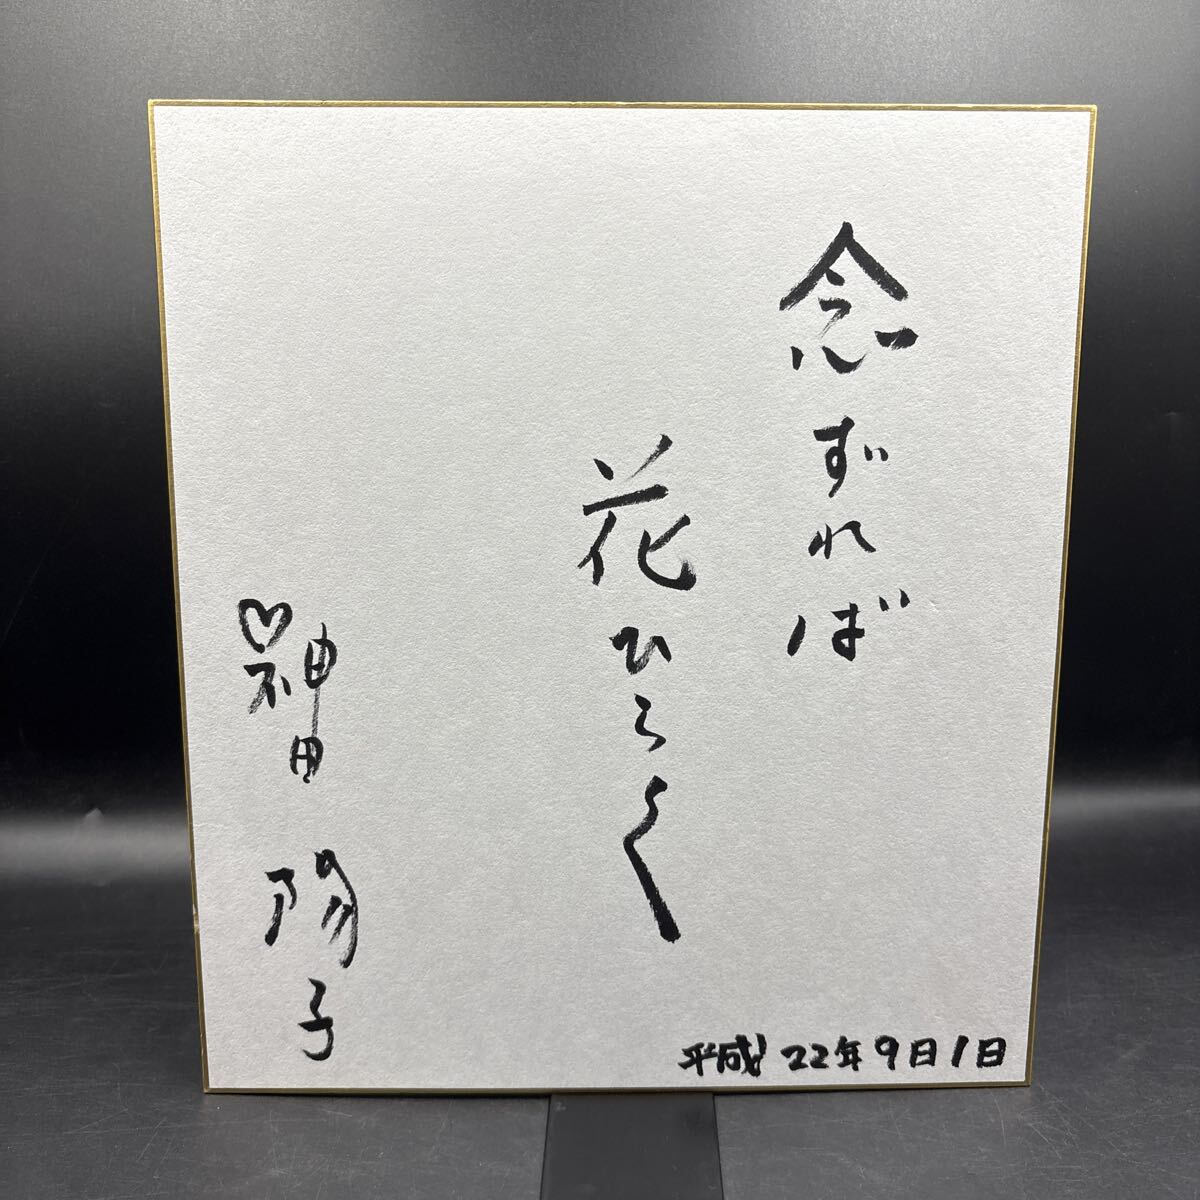 念ずれば
花ひらく
♡神田陽子
平成22年9月1日